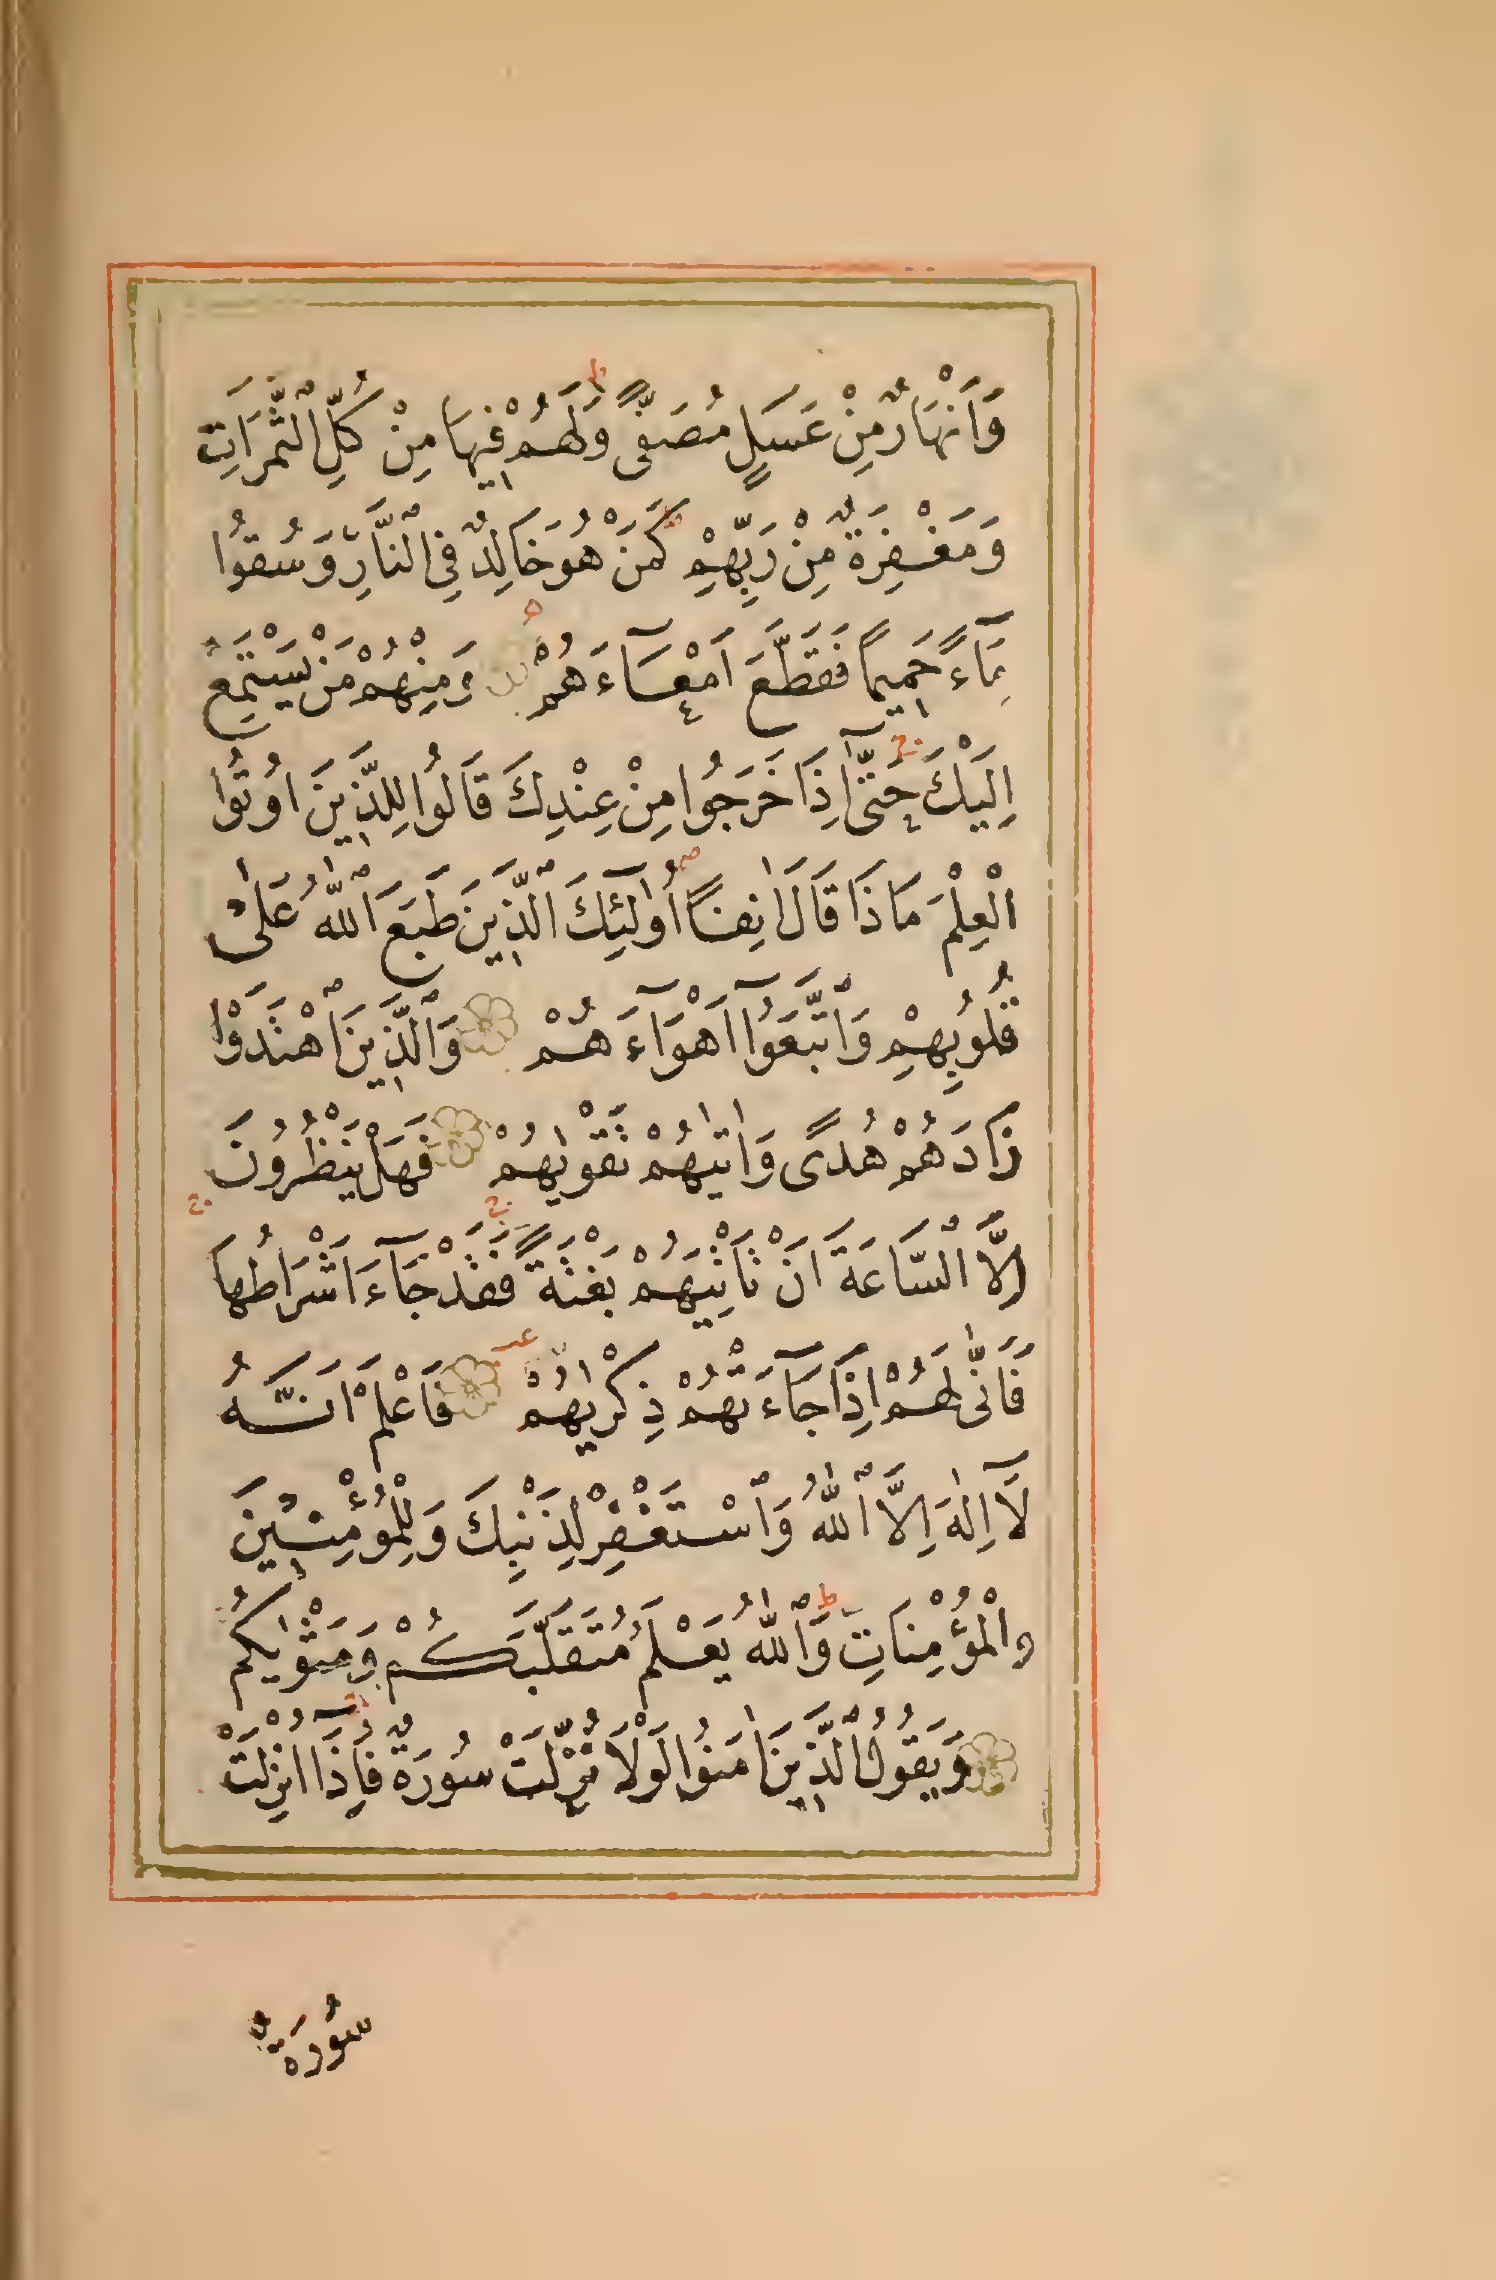 وَاَنْهَارٌ مِنْ عَسَلٍ مُصَفًّىۜ وَلَهُمْ فٖيهَا مِنْ كُلِّ الثَّمَرَاتِ
وَمَغْفِرَةٌ مِنْ رَبِّهِمْ كَمَنْ هُوَ خَالِدٌ فِى النَّارِ وَسُقُوا
مَآءً حَمٖيمًا فَقَطَّعَ اَمْعَآءَهُمْ وَمِنْهُمْ مَنْ يَسْتَمِعُ
اِلَيْكَ حَتّٰٓى اِذَا خَرَجُوا مِنْ عِنْدِكَ قَالُوا لِلَّذٖينَ اُوتُوا
الْعِلْمَ مَاذَا قَالَ اٰنِفًا اُولٰٓئِكَ الَّذٖينَ طَبَعَ اللّٰهُ عَلٰى
قُلُوبِهِمْ وَاتَّبَعُٓوا اَهْوَآءَهُمْ وَالَّذٖينَ اهْتَدَوْا
زَادَهُمْ هُدًى وَاٰتٰيهُمْ تَقْوٰيهُمْ فَهَلْ يَنْظُرُونَ
اِلَّا السَّاعَةَ اَنْ تَاْتِيَهُمْ بَغْتَةً فَقَدْ جَآءَ اَشْرَاطُهَا
فَاَنّٰى لَهُمْ اِذَا جَآءَتْهُمْ ذِكْرٰيهُمْ فَاعْلَمْ اَنَّهُ
لَآ اِلٰهَ اِلَّا اللّٰهُ وَاسْتَغْفِرْ لِذَنْبِكَ وَلِلْمُؤْمِنٖينَ
وَالْمُؤْمِنَاتِ وَاللّٰهُ يَعْلَمُ مُتَقَلَّبَكُمْ وَمَثْوٰيكُمْ
وَيَقُولُ الَّذٖينَ اٰمَنُوا لَوْلَا نُزِّلَتْ سُورَةٌ فَاِذَآ اُنْزِلَتْ
سُورَةٌ